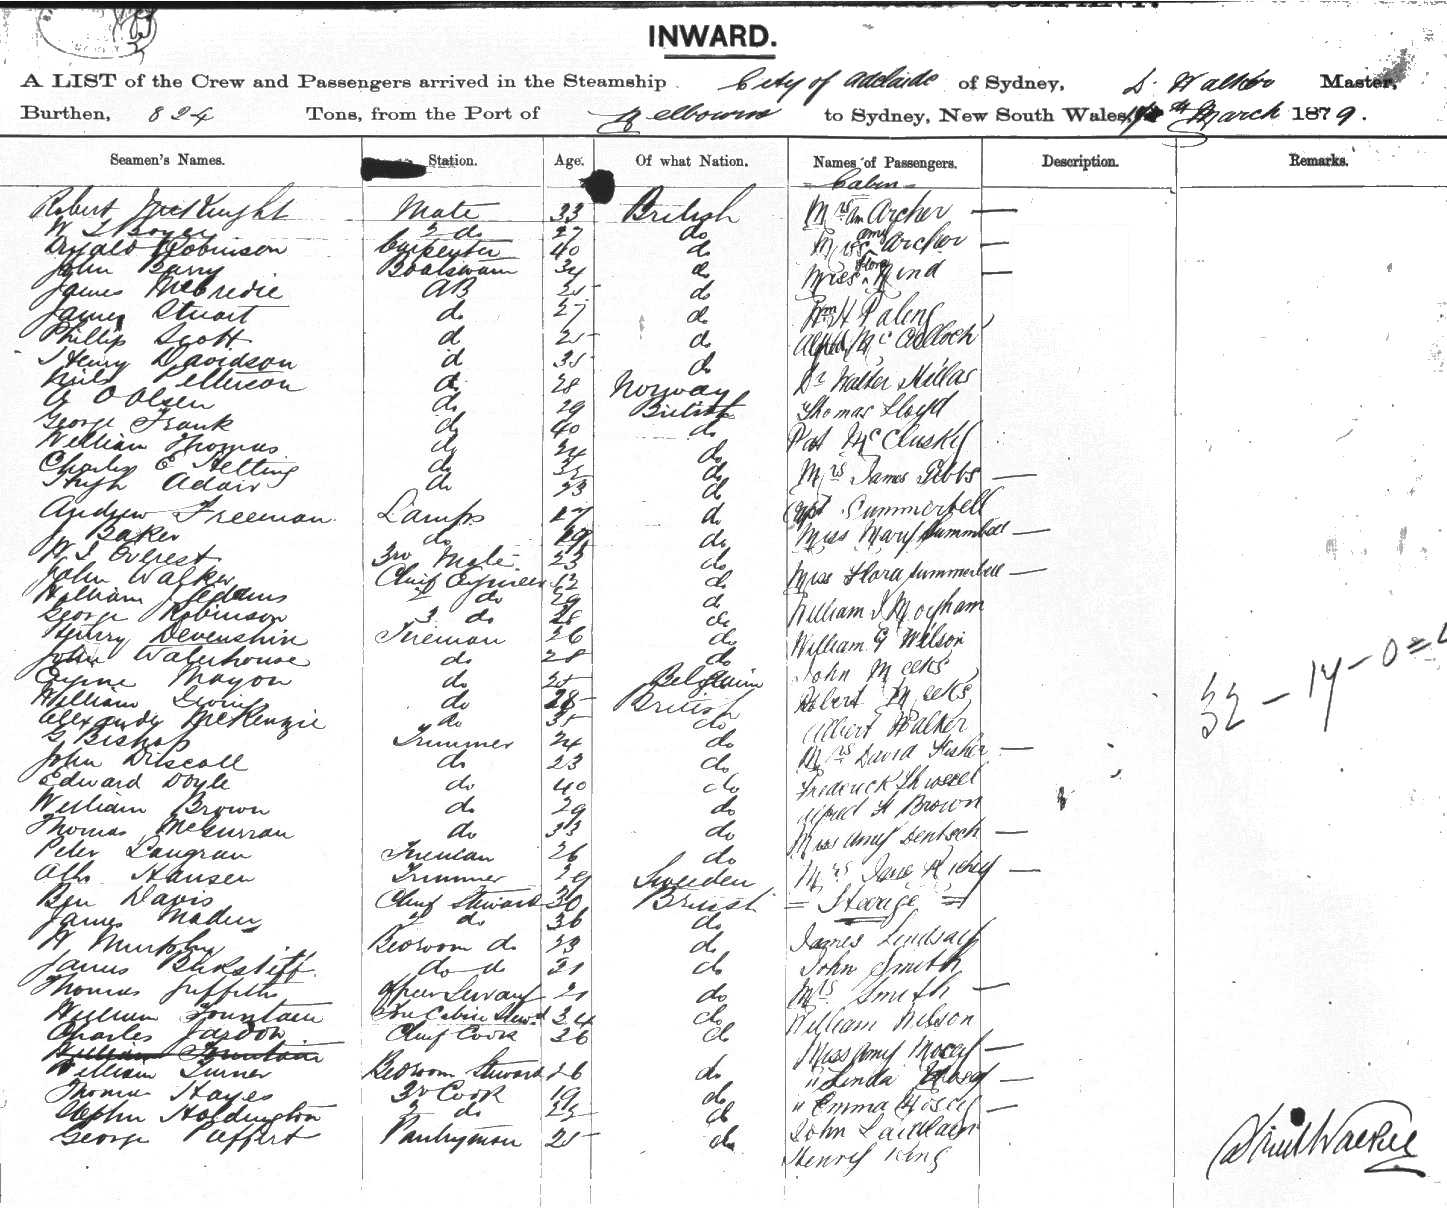 INWARD.
A LIST of the Crew and Passengers arrived in the Steamship City of Adelaide of Sydney, D. Walker Master,
Burthen, 824 Tons, from the Port of Melbourne to Sydney, New South Wales, March 1879.
Seamen's Names. Station. Age. Of what Nation. Names of Passengers. Description. Remarks.
Cabin
Robert McKnight Mate 33 British Mrs Wm Archer —
W S Boyer 2 do 27 do Miss Amy Archer —
Robinson Carpenter 40 do Miss Flora Hind —
John Barry Boatswain 34 do
James McBredie AB 25 do Wm H Paling
James Stuart do 27 do Alfred McCulloch
Phillip Scott d 25 do
Henry Davidson d 35 do Dr Walter Hillas
Neils Petterson do 28 Norway Thomas Lloyd
A O Olsen do 29 British
George Frank do 40 do Pat McCluskey
William Thomas do 24 do
Charles E Helting do 35 do Mrs James Gibbs —
Hugh Adair do 23 do
Andrew Freeman Lamps 27 do Capt Summerbell
J Baker do do Miss Mary Summerbell —
W J Everest 3rd Mate 23 do
John Walker Chief Engineer do Miss Flora Summerbell —
William 2 do 29 do William J
George Robinson 3 do 28 do William G Wilson
Henry Devenshire Fireman 26 do
John Waterhouse do 28 do John Meeks
Mayon do 25 Belgium Robert Meeks
William do 28 British Albert Walker
Alexander McKenzie do 35 do
G Bishop Trimmer 24 do Mrs David Fisher —
John Driscoll do 23 do Frederick
Edward Doyle do 40 do Alfred H Brown
William Brown do 29 do
Thomas McCurran do 33 do Miss Amy Dentsch —
Peter Langran Fireman 26 do
Hansen Trimmer 29 Sweden Mrs Jane Richey —
Ben Davis Chief Steward 30 British = Steerage =
James Maden 2 do 36 do
H Murphy Bedroom do 23 do James Lindsay
James do do 21 do John Smith
Thomas Griffiths Officers Servant 21 do Mrs Smith —
William Fountain Fore Cabin Stewd 34 do William Wilson
Charles Jardon Chief Cook 36 do
William Fountain Miss Amy Mosey —
William Turner Bedroom Steward 26 do " Linda Mosey —
Thomas Hayes 3rd Cook 19 do " Emma Mosey —
Stephen Holdington 2 do 22 do John Laidlaw
George Peffert Pantryman 25 do Henry King
32 - 14 - 0
David Walker